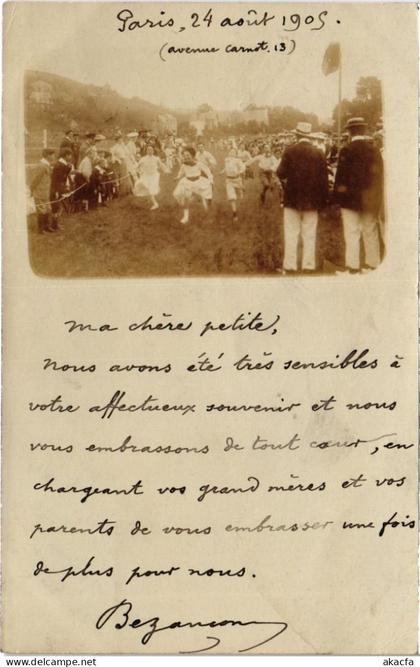 Paris, 24 août 1905.
(avenue Carnot. 13)
Ma chère petite,
Nous avons été très sensibles à
votre affectueux souvenir et nous
vous embrassons de tout cœur, en
chargeant vos grand mères et vos
parents de vous embrasser une fois
de plus pour nous.
Bezançon
delcampe.net
The Collector's Marketplace
akacfa